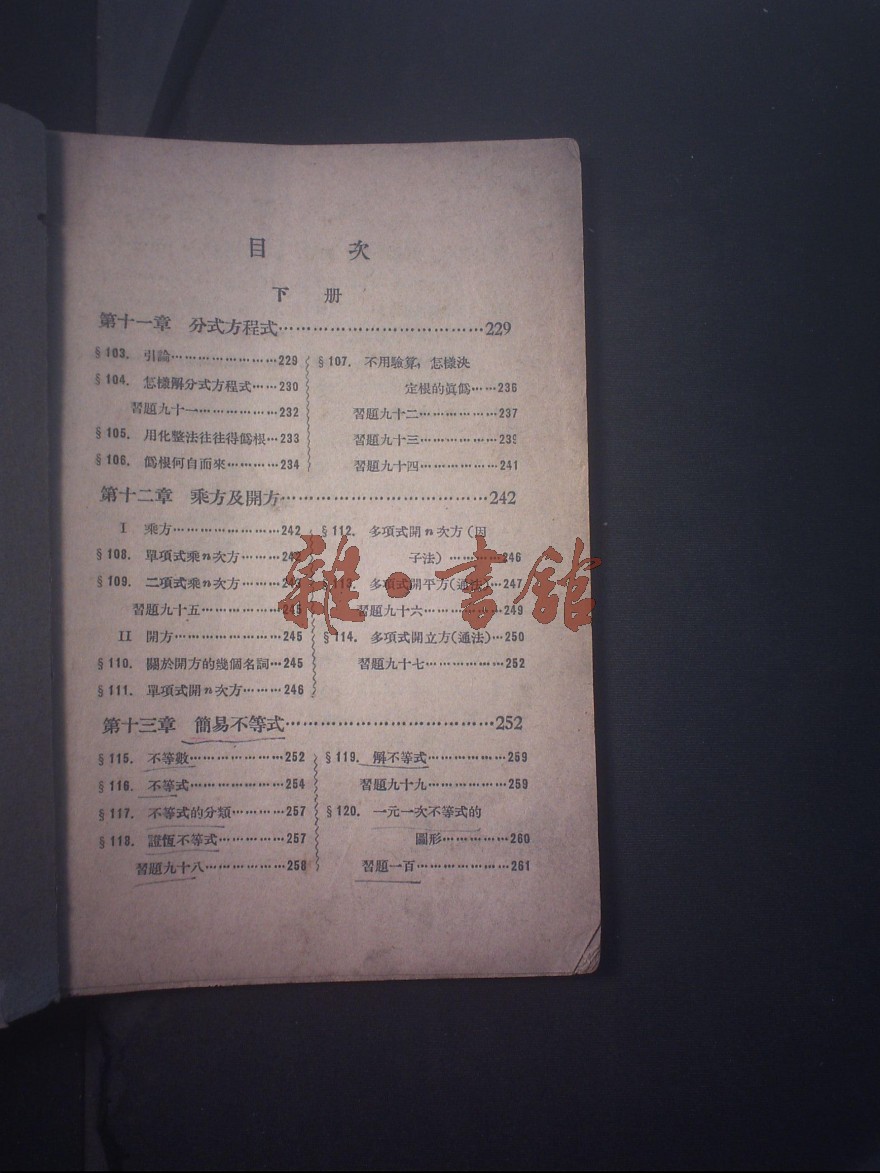 目 次
下 册
第十一章 分式方程式……………………………229
§103. 引論…………………229
§104. 怎樣解分式方程式……230
習題九十一……………232
§105. 用化整法往往得僞根…233
§106. 僞根何自而來…………234
§107. 不用驗算，怎樣決
定根的眞僞……236
習題九十二……………237
習題九十三……………239
習題九十四……………241
第十二章 乘方及開方……………………………242
I 乘方…………………242
§108. 單項式乘n次方………242
§109. 二項式乘n次方………243
習題九十五……………245
II 開方…………………245
§110. 關於開方的幾個名詞…245
§111. 單項式開n次方………246
§112. 多項式開n次方（因
子法）…………246
§113. 多項式開平方(通法)…247
習題九十六……………249
§114. 多項式開立方(通法)…250
習題九十七……………252
第十三章 簡易不等式……………………………252
§115. 不等數………………252
§116. 不等式………………254
§117. 不等式的分類…………257
§118. 證恆不等式……………257
習題九十八……………258
§119. 解不等式……………259
習題九十九……………259
§120. 一元一次不等式的
圖形……………260
習題一百………………261
雜·書館